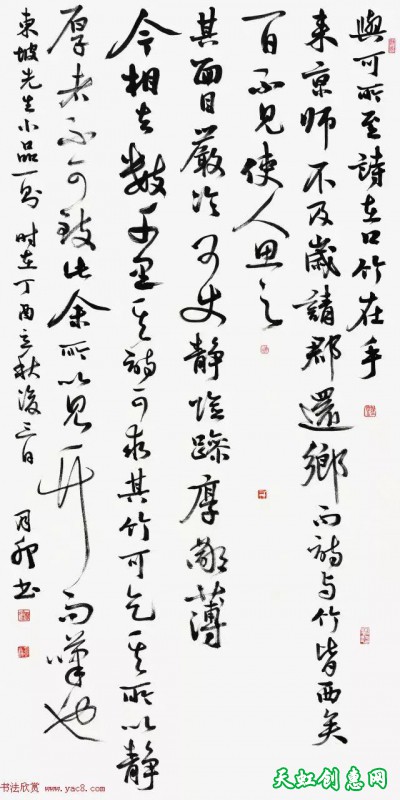 與可所至詩在口竹在手
来京師不及歲請郡還鄉而詩与竹皆西矣
一日不見使人思之
其面目嚴冷可使静險躁厚鄙薄
今相去數千里其詩可求其竹可乞其所以静
厚者不可致此余所以見竹而嘆也
東坡先生小品一則 时在丁酉立秋後三日 书
书法欣赏 www.yac8.com
天虹创惠网